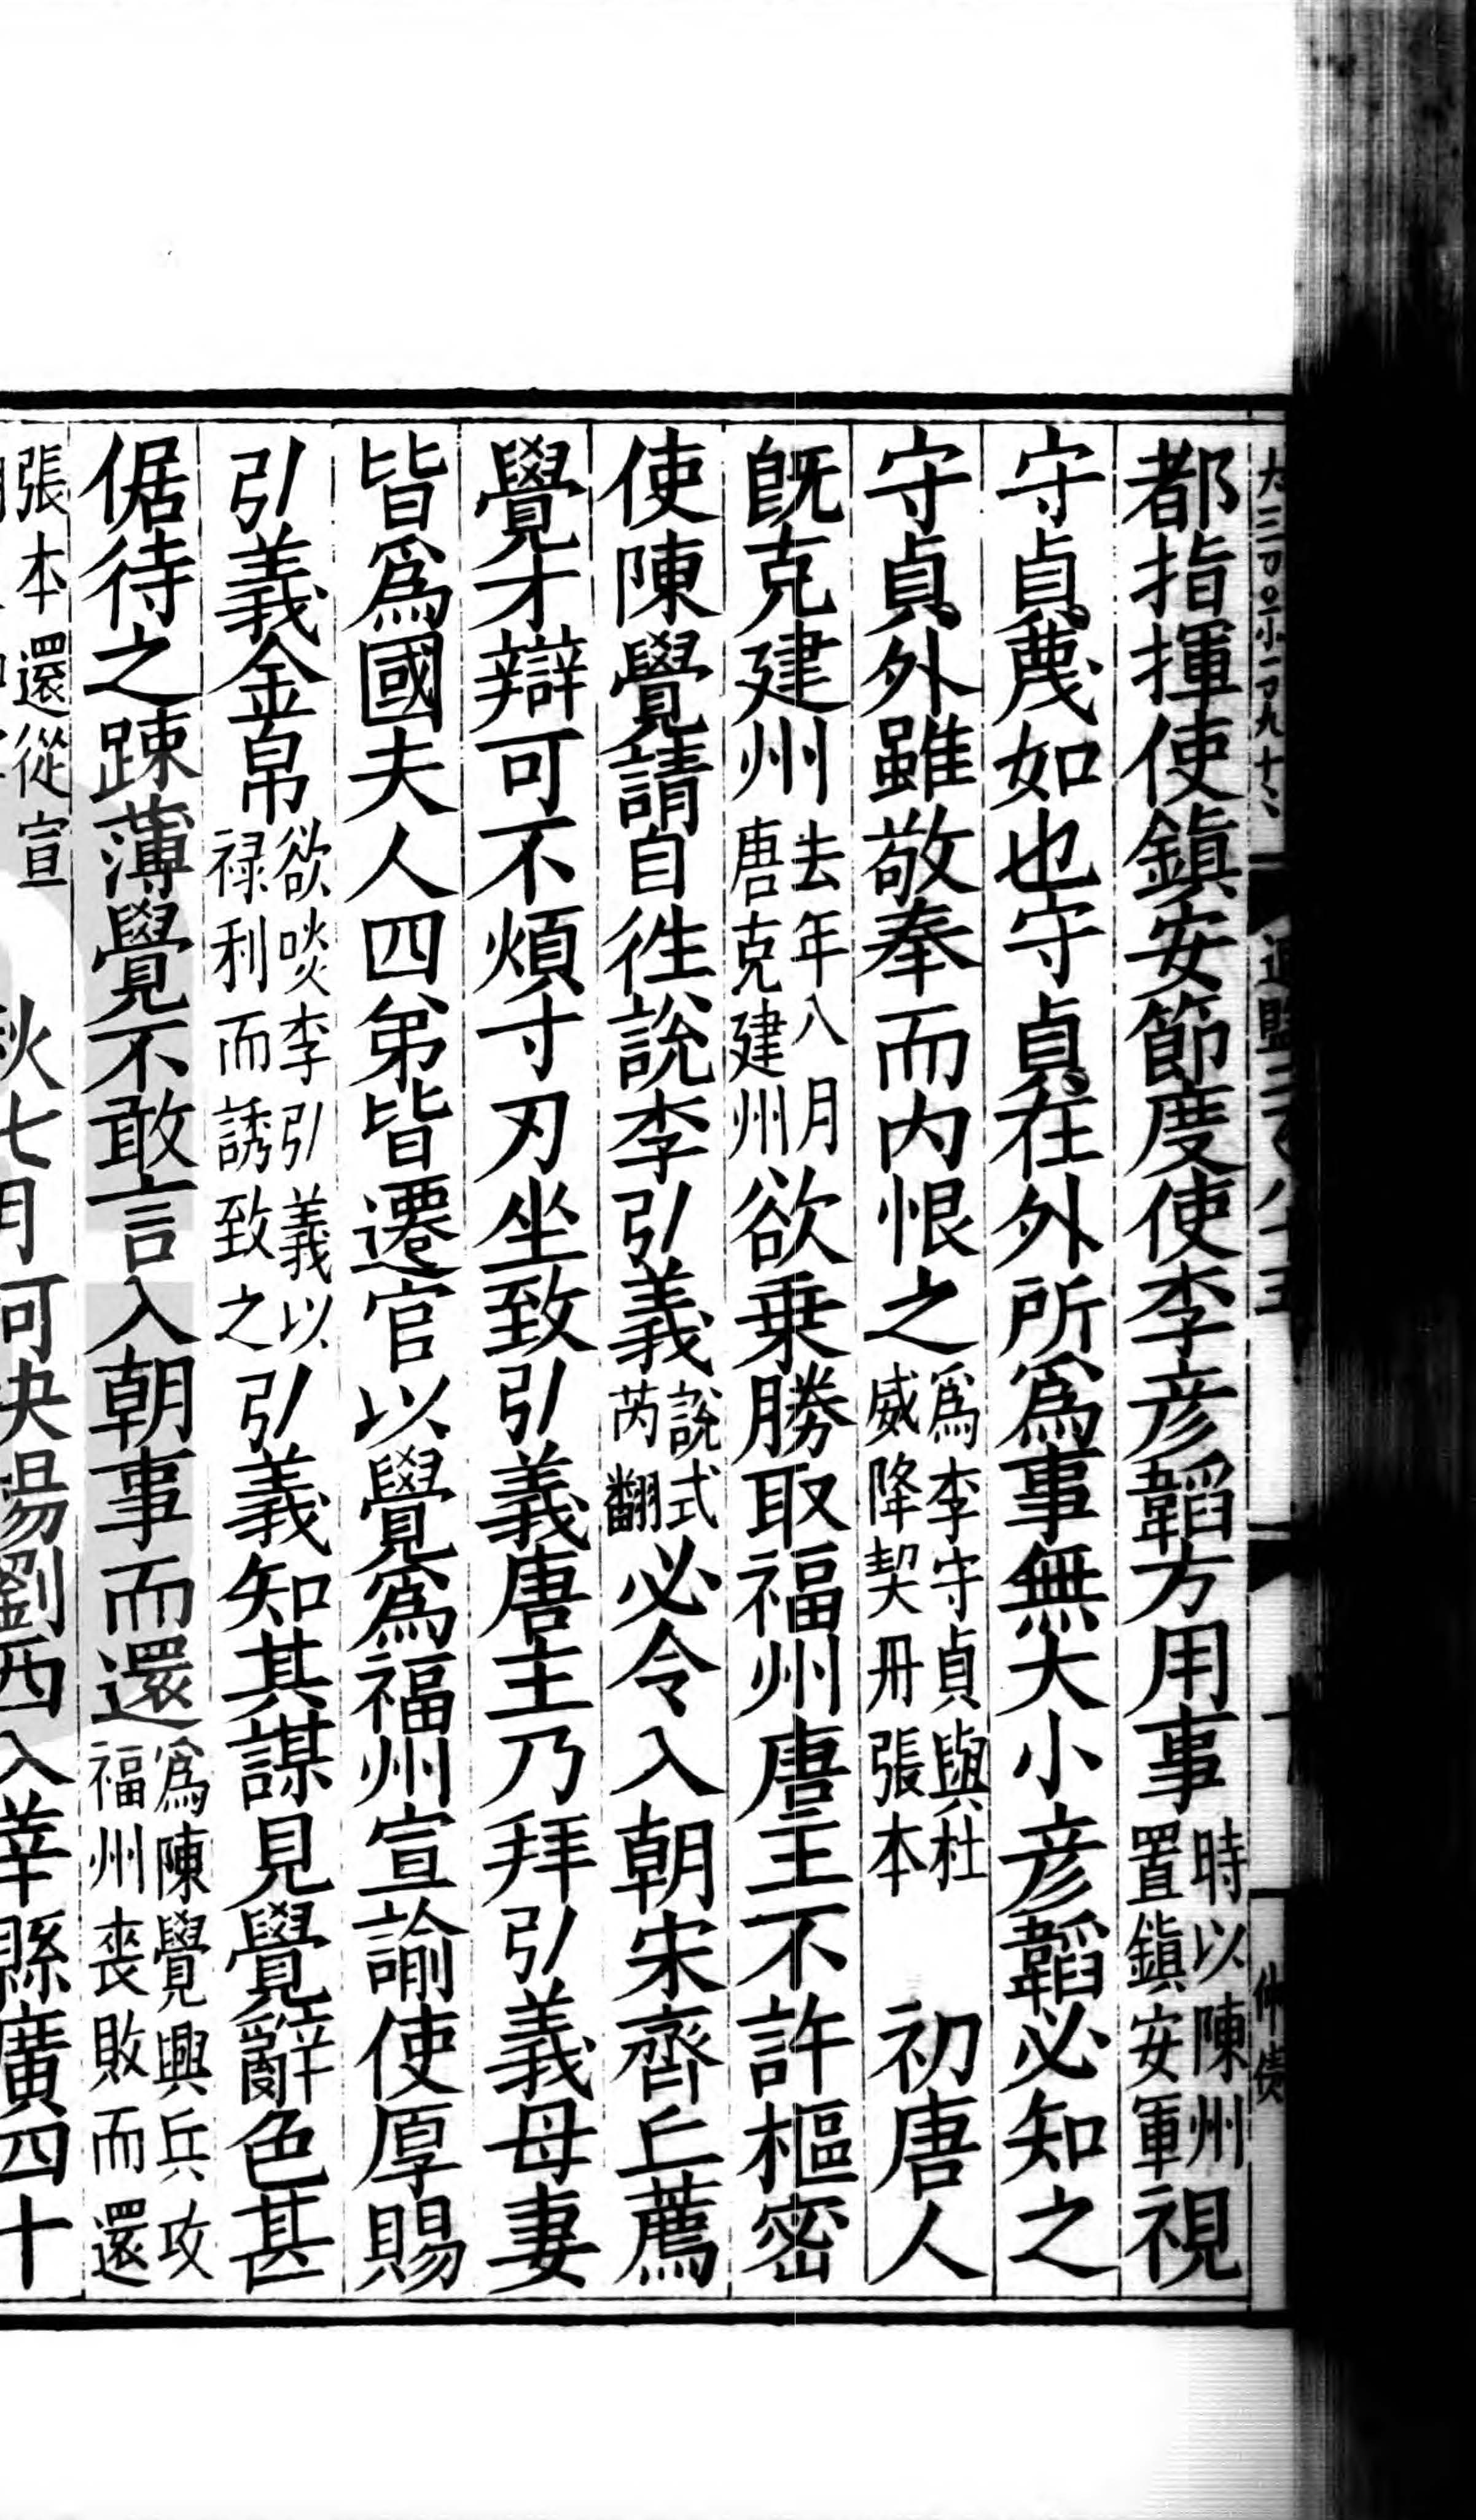 都指揮使鎮安節度使李彦韜方用事時以陳州置鎮安軍視
守貞蔑如也守貞在外所爲事無大小彦韜必知之
守貞外雖敬奉而内恨之爲李守貞與杜威降契丹張本 初唐人
旣克建州去年八月唐克建州欲乗勝取福州唐主不許樞密
使陳覺請自徃說李引義說式芮翻必令入朝宋齊丘薦
覺才辯可不煩寸刃坐致引義唐主乃拜引義母妻
皆爲國夫人四弟皆遷官以覺爲福州宣諭使厚賜
引義金帛欲啖李引義以禄利而誘致之引義知其謀見覺辭色甚
倨待之踈薄覺不敢言入朝事而還爲陳覺興兵攻福州丧敗而還
張本還從宣 秋七月河决楊劉西入莘縣廣四十